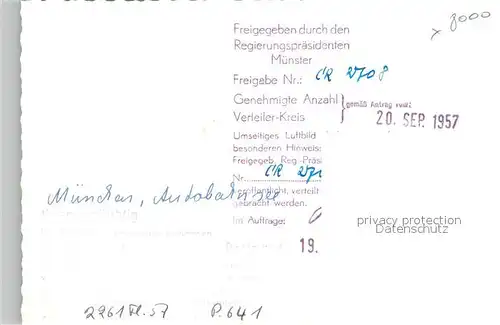 8000
Freigegeben durch den
Regierungspräsidenten
Münster
Freigabe Nr.: CR 2708
Genehmigte Anzahl
Verteiler-Kreis
gemäß Antrag vom:
20. SEP. 1957
Umseitiges Luftbild
besonderen Hinweis:
Freigegeb. Reg.-Präs
Nr. CR
München, Autobahnsee
veröffentlicht, verteilt
gebracht werden.
Im Auftrage:
privacy protection
Datenschutz
19.
2961 Fl. 57 P. 641